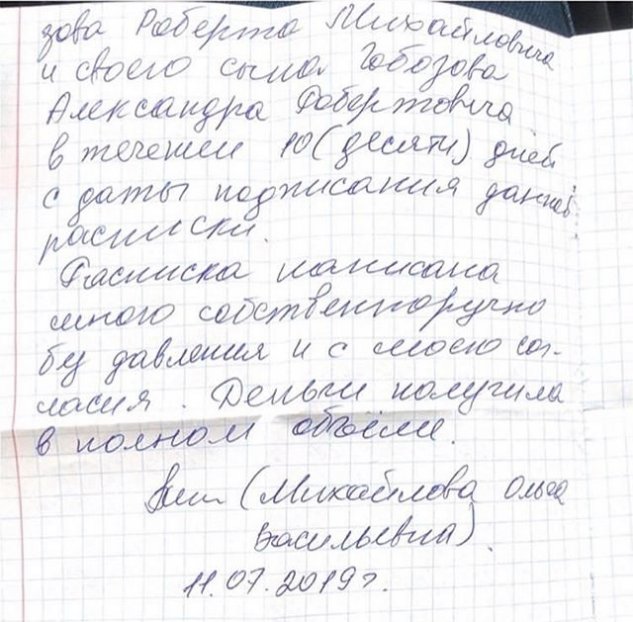 зова Роберта Михайловича
и своего сына Гобозова
Александра Робертовича
в течении 10 (десяти) дней
с даты подписания данной
расписки.
Расписка написана
мною собственноручно
без давления и с моего сог-
ласия. Деньги получила
в полном объёме.
(Михайлова Ольга
Васильевна).
11.07.2019г.